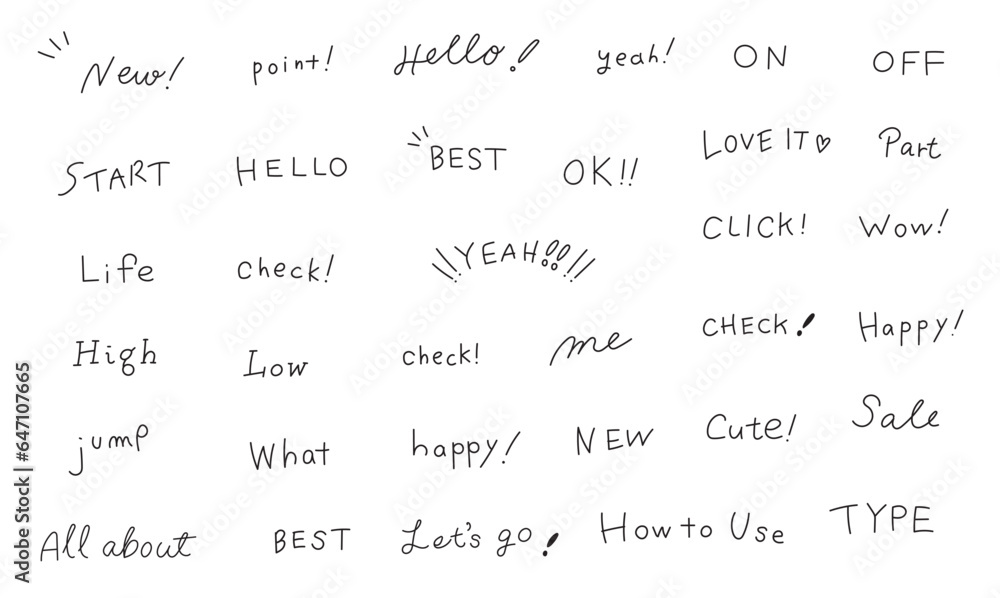 New! point! Hello! yeah! ON OFF
START HELLO BEST OK!! LOVE IT♡ Part
CLICK! Wow!
Life check! \\YEAH!!//
High Low check! me CHECK! Happy!
jump What happy! NEW Cute! Sale
All about BEST Let's go! How to Use TYPE
Adobe Stock | #647107665